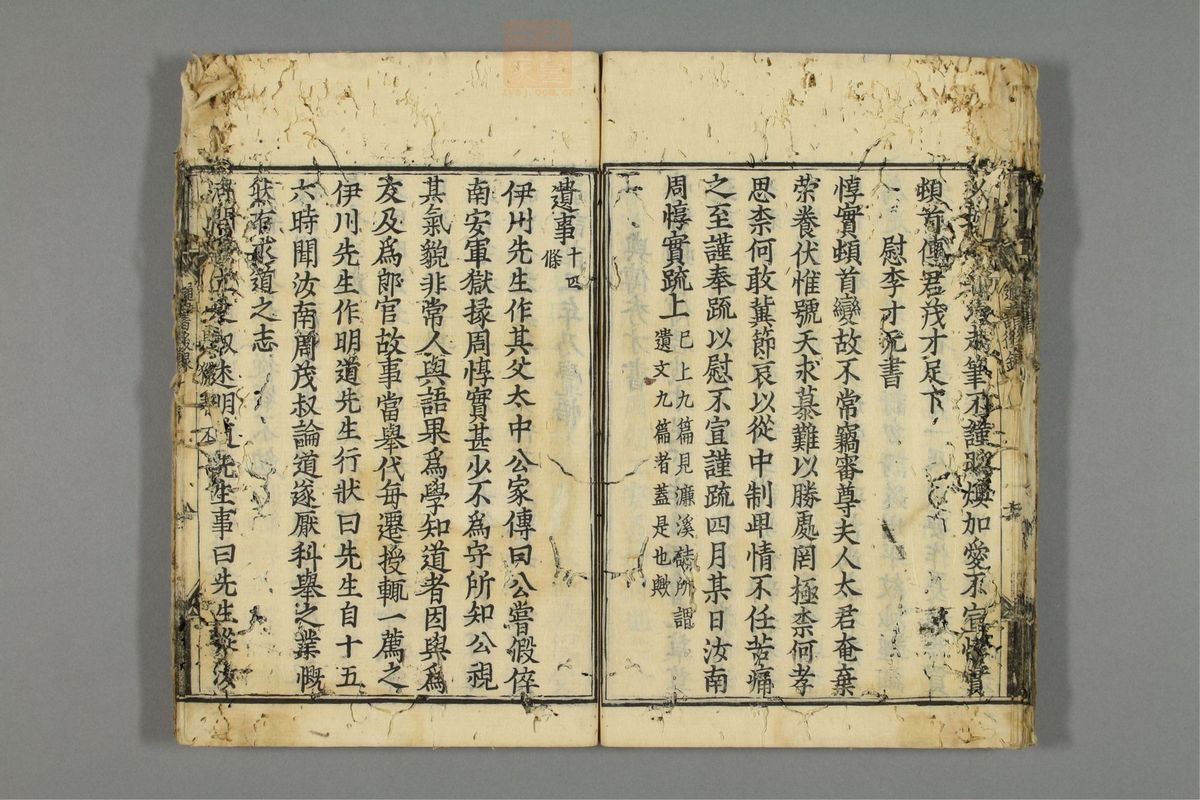 求筆不謹蹤燠加愛不宣惇實
頓首傳君茂才足下
慰李才元書
惇實頓首變故不常竊審尊夫人太君奄棄
榮養伏惟號天求慕難以勝處罔極柰何孝
思柰何敢兾節哀以從中制卑情不任苦痛
之至謹奉疏以慰不宣謹疏四月某日汝南
周惇實疏上
已上九篇見濂溪誌所謂
遺文九篇者蓋是也歟
遺事
十四
條
伊川先生作其父太中公家傳曰公嘗假倅
南安軍獄掾周惇實甚少不爲守所知公視
其氣貌非常人與語果爲學知道者因與爲
友及爲郎官故事當舉代每遷授輒一薦之
伊川先生作明道先生行狀曰先生自十五
六時聞汝南周茂叔論道遂厭科舉之業慨
然有求道之志
明道先生事曰先生從汝